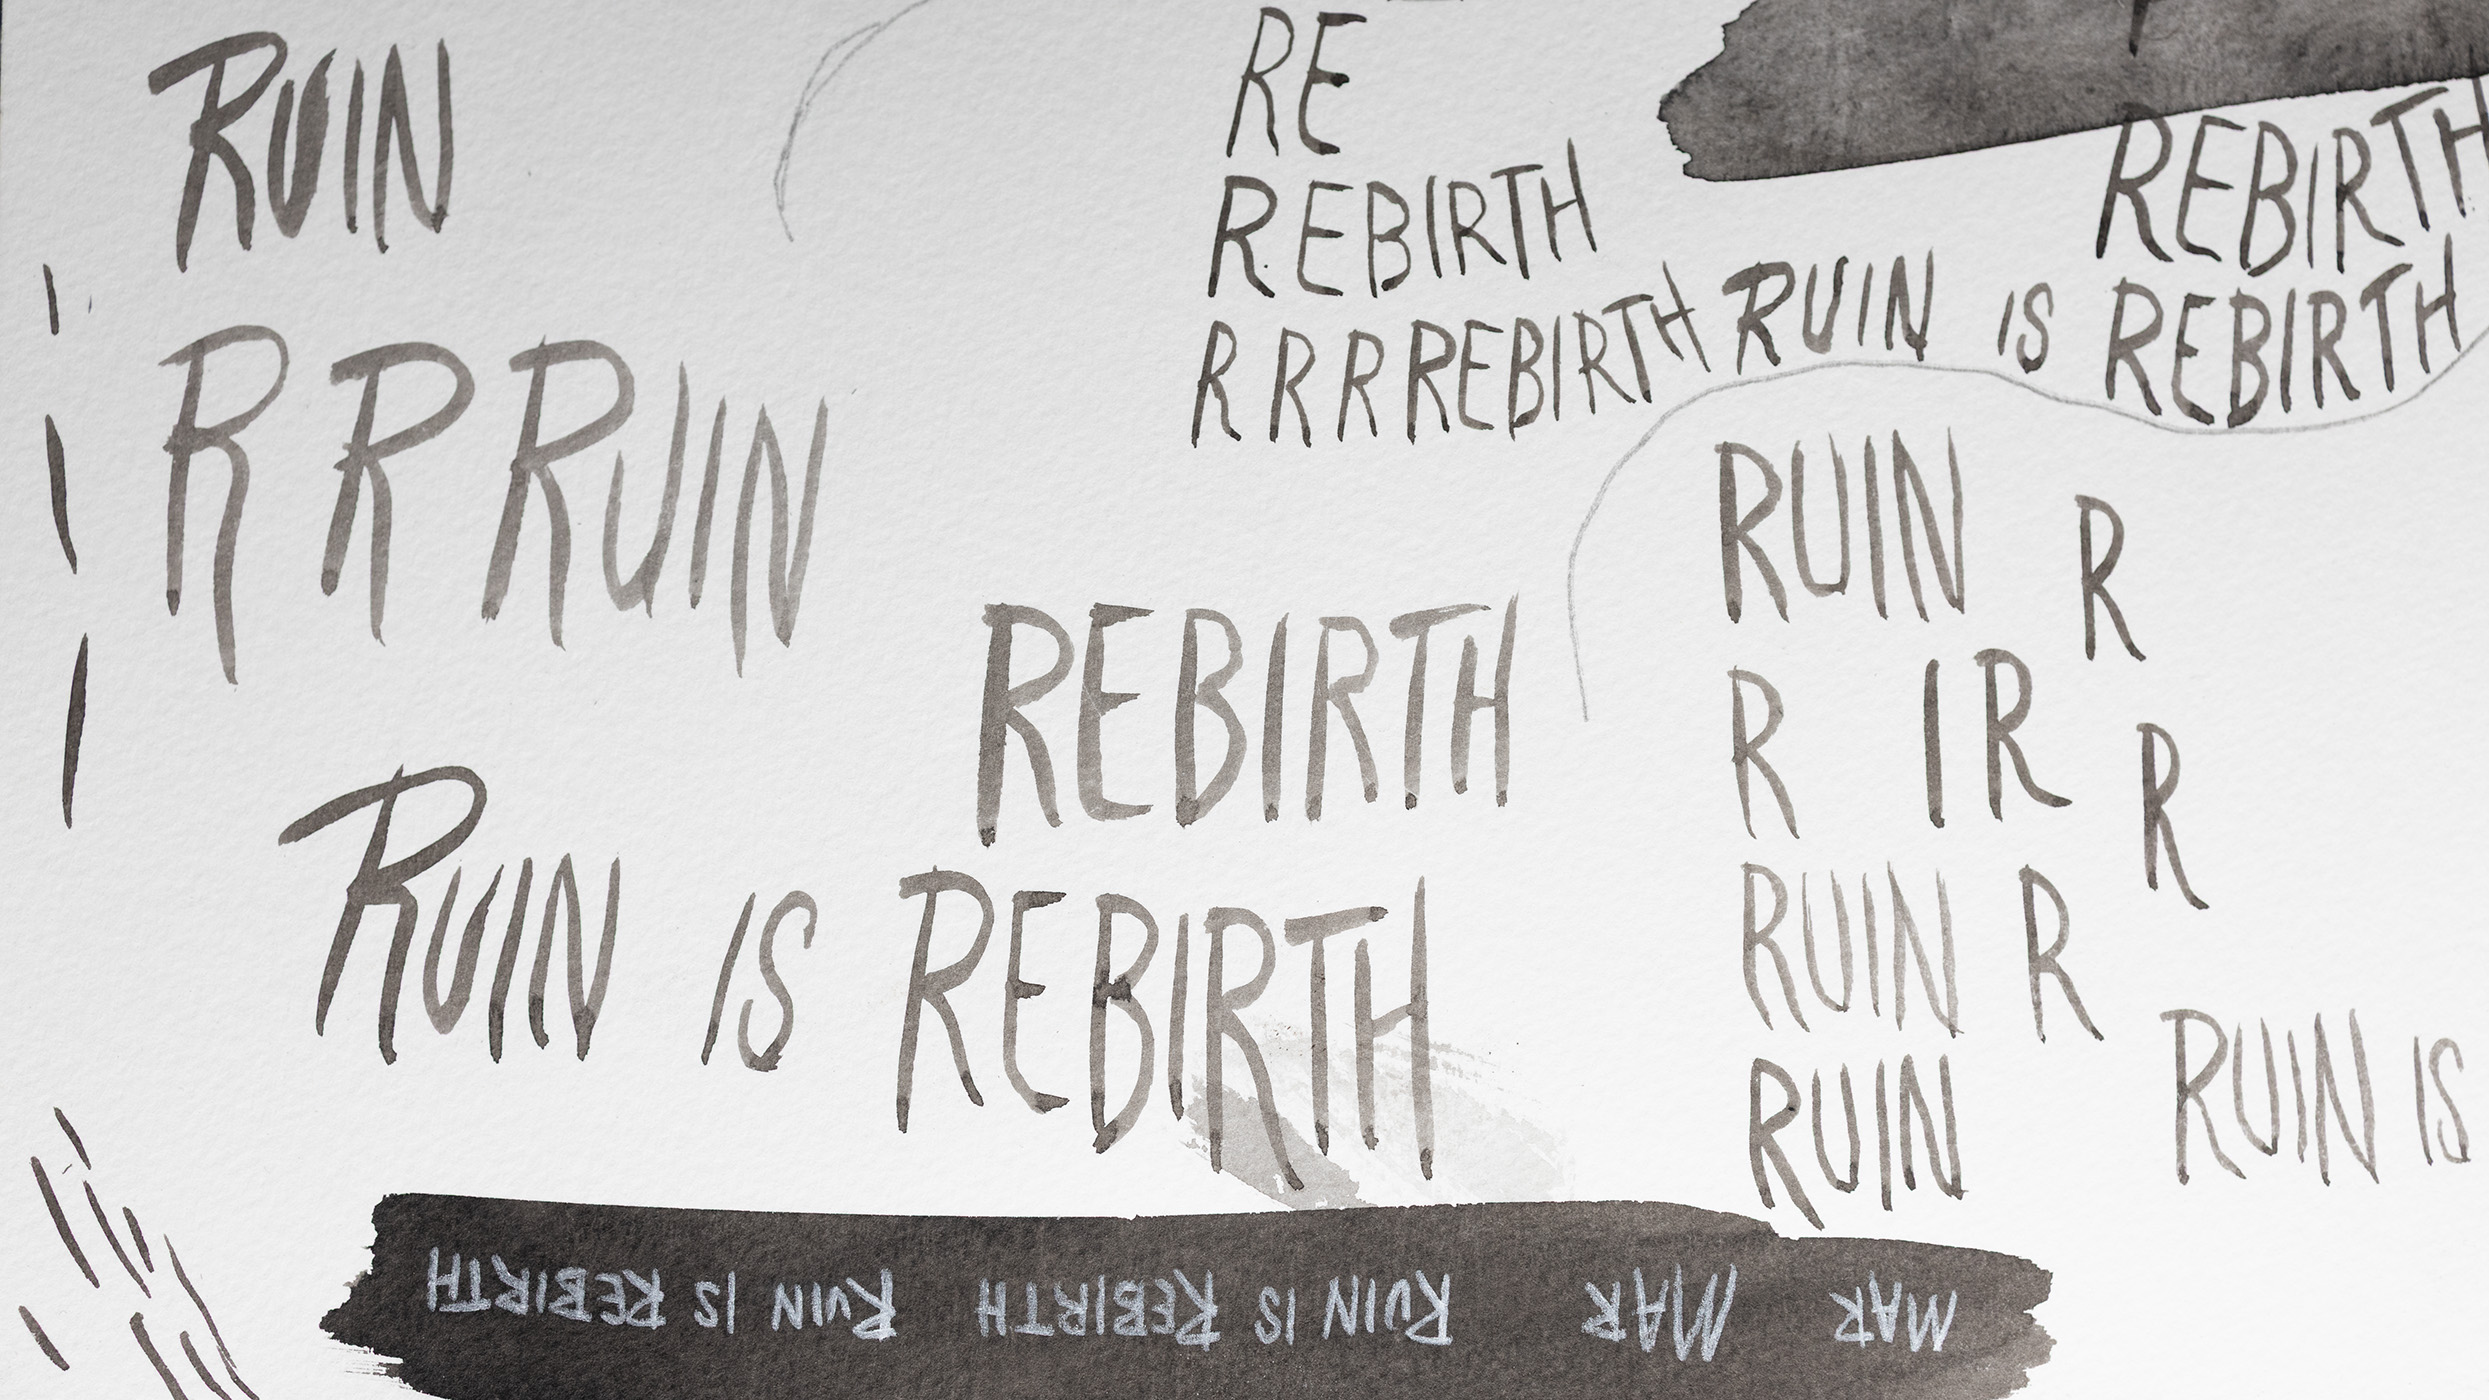 RUIN
R R RUIN
RE
REBIRTH
R R R REBIRTH
REBIRTH
RUIN IS REBIRTH
RUIN R
R I R
R
RUIN R
RUIN
RUIN IS
REBIRTH
RUIN IS REBIRTH
MAR MAR RUIN IS REBIRTH RUIN IS REBIRTH